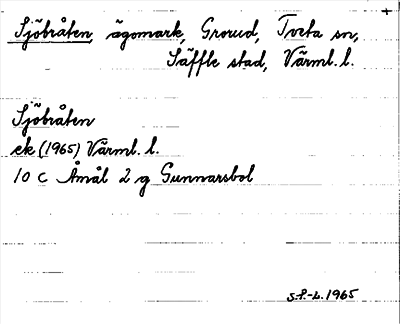 Sjöbråten, ägomark, Grorud, Tveta sn,
Säffle stad, Värml. l.
Sjöbråten
ek (1965) Värml. l.
10 C Åmål 2 g Gunnarsbol
S.P.-L. 1965